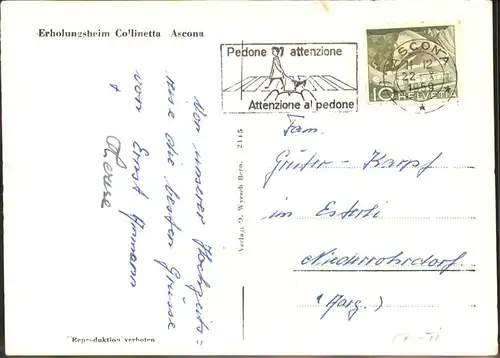 Erholungsheim Collinetta Ascona
Pedone attenzione
Attenzione al pedone
ASCONA
11-12
22
1959
10 HELVETIA
Von unserer Hochzeits=
reise die besten Grüsse
von Ernst Ammann
Verlag O. Wyrsch Bern. 2115
Fam.
Grüter-Kampf
im Esterli
Niederrohrdorf
(Aarg.)
Reproduktion verboten